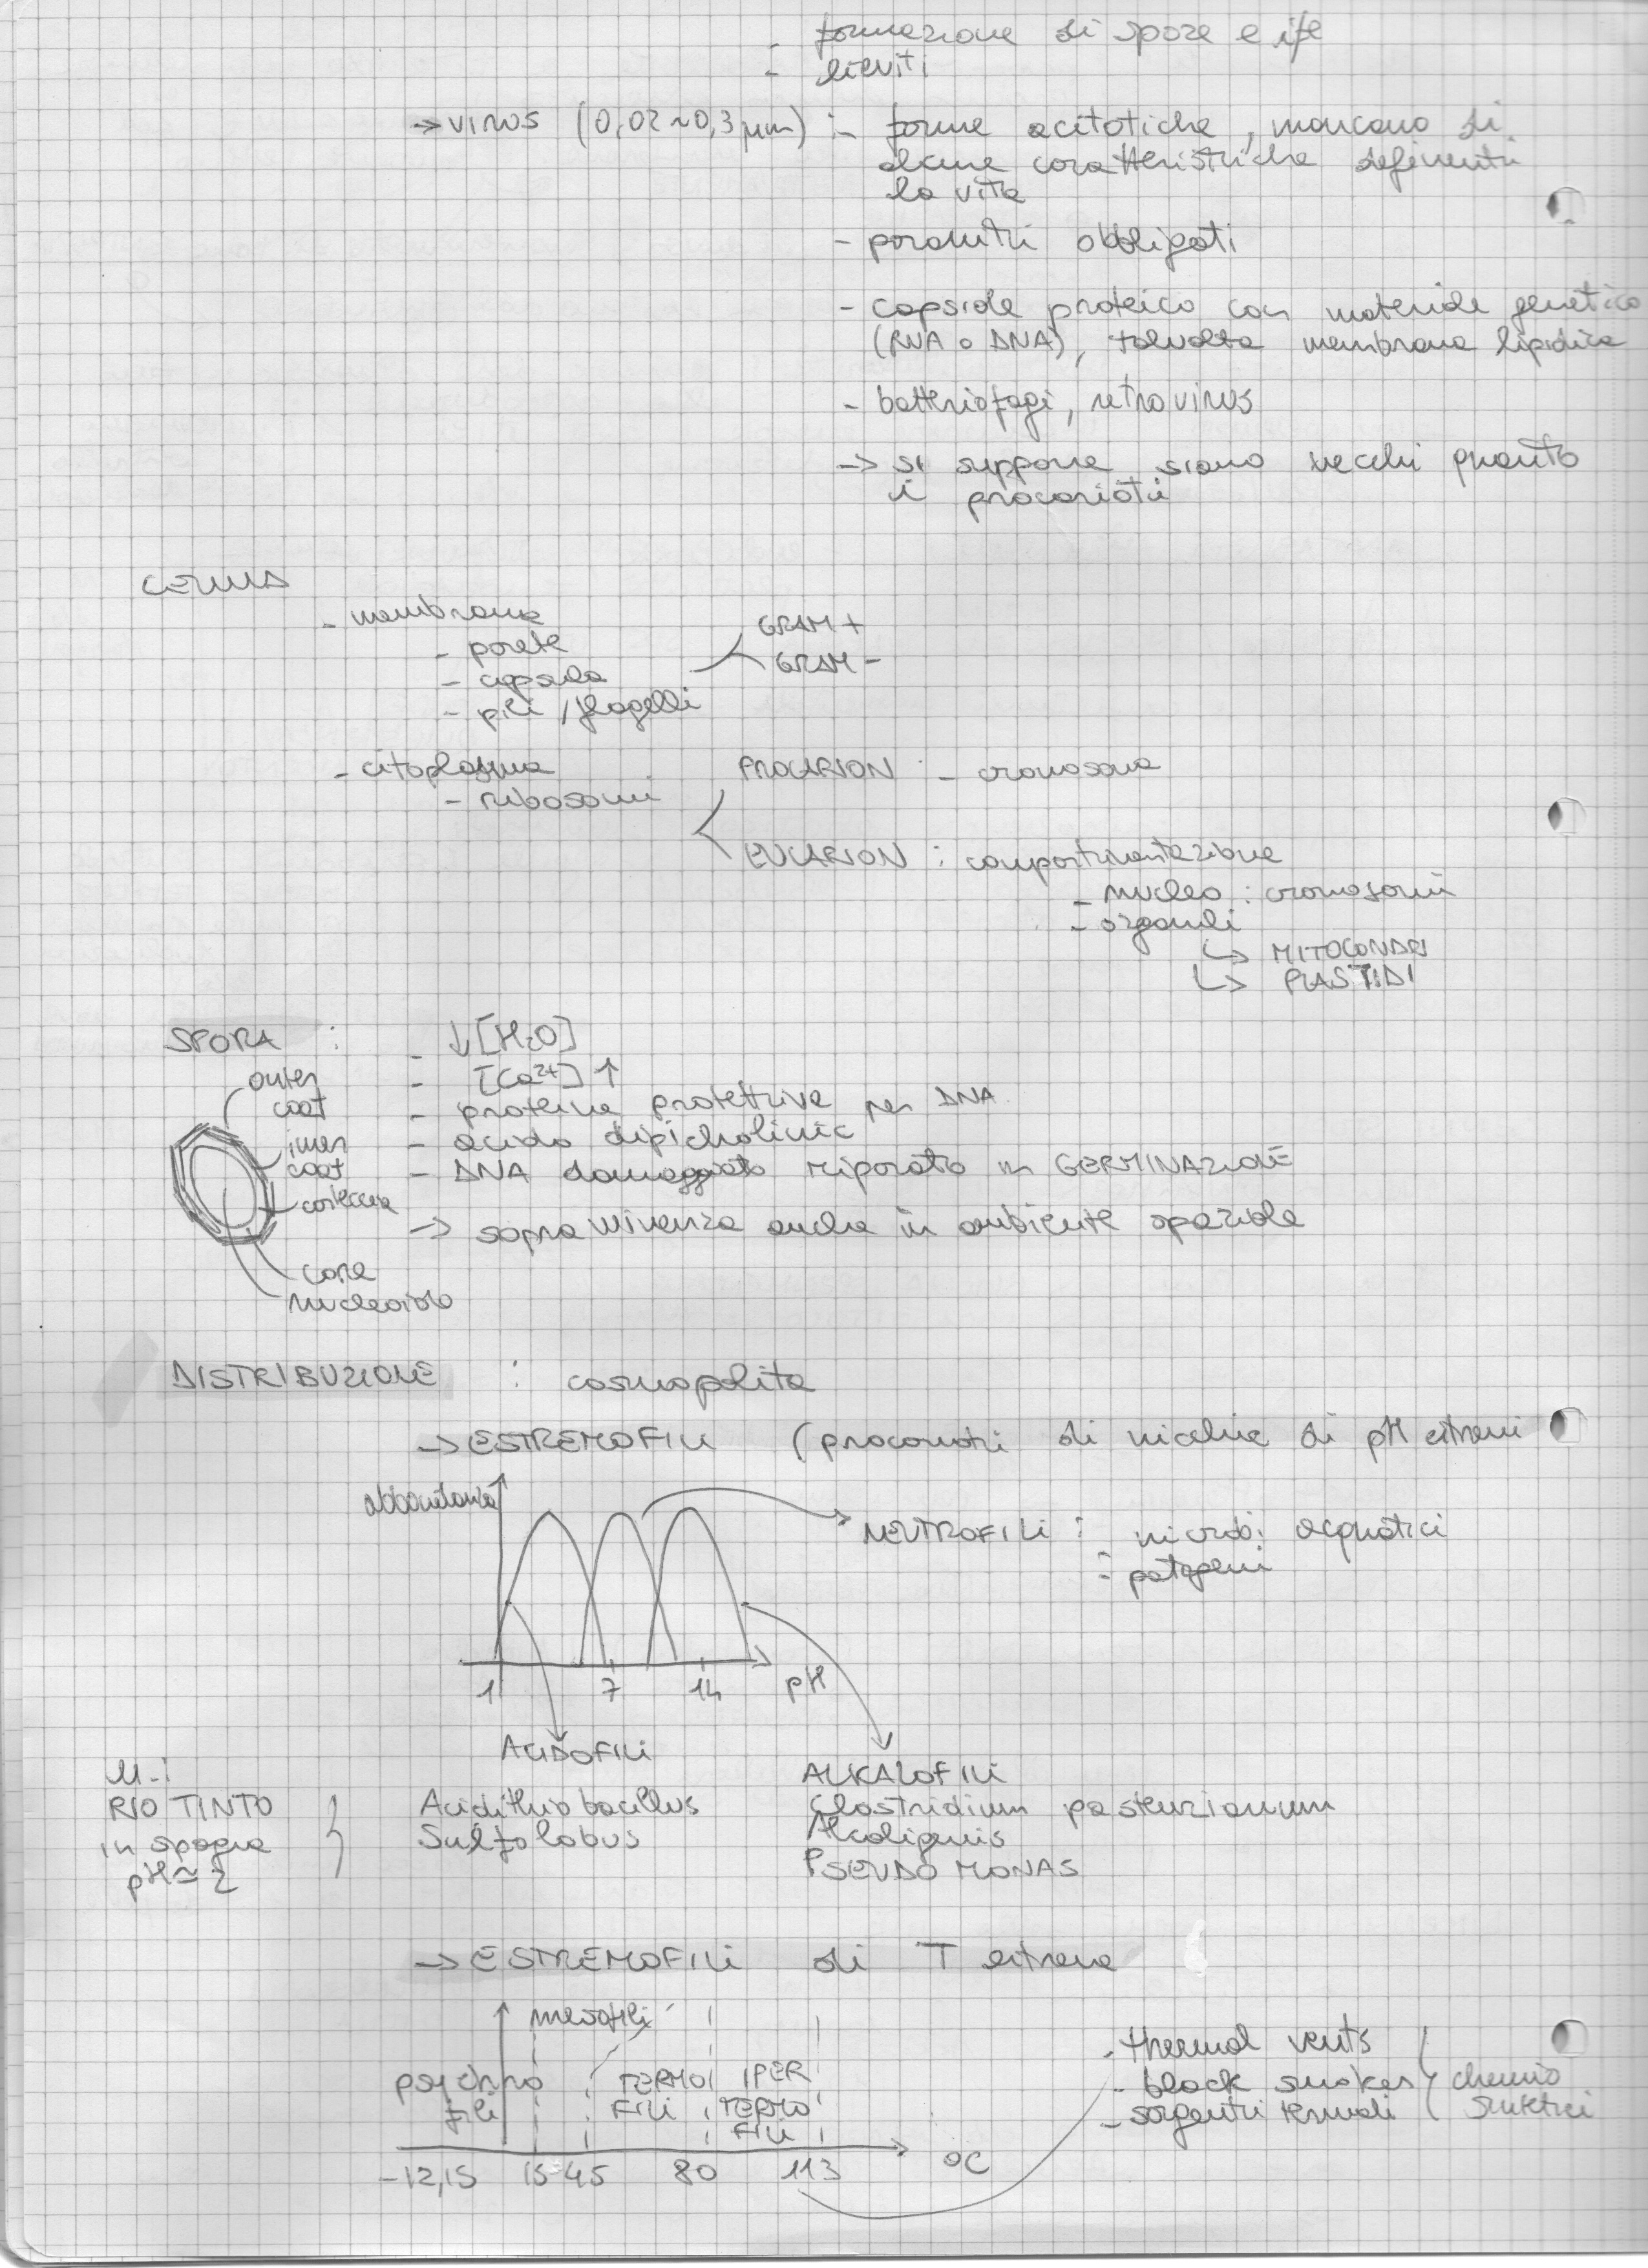 - formazione di spore e ife
- lieviti
→ virus (0,02~0,3 μm) :- forme acitotiche, mancano di
alcune caratteristiche definenti
la vita
- parassiti obbligati
- capside proteico con materiale genetico
(RNA o DNA), talvolta membrana lipidica
- batteriofagi, retrovirus
→ si suppone siano vecchi quanto
i procarioti
CELLULA
- membrana
- parete
- capsula
- pili / flagelli
GRAM +
GRAM -
- citoplasma
- ribosomi
PROCARION : - cromosoma
EUCARION : compartimentazione
- nucleo : cromosomi
- organuli
↳ MITOCONDRI
↳ PLASTIDI
SPORA :
- ↓[H2O]
- [Ca2+] ↑
- proteine protettive per DNA
- acido dipicholinic
- DNA danneggiato riparato in GERMINAZIONE
→ sopravvivenza anche in ambiente spaziale
outer
coat
inner
coat
corteccia
core
nucleoide
DISTRIBUZIONE : cosmopolita
→ ESTREMOFILI (procarioti di nicchie di pH estremi
abbondanza
→ NEUTROFILI : - microbi acquatici
- patogeni
1 7 14 pH
ACIDOFILI
ALKALOFILI
RIO TINTO
in spagna
pH ≃ 2
Acidithiobacillus
Sulfolobus
Clostridium pasteurianum
Alcaligenis
PSEUDOMONAS
→ ESTREMOFILI di T estrema
mesofili
psychro
fili
TERMO
FILI
IPER
TERMO
FILI
-12,15 15 45 80 113 °C
- thermal vents
- black smokers
- sorgenti termali
chemio
sintetici